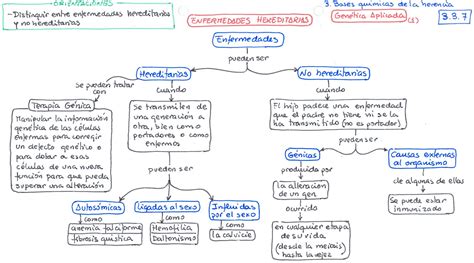 ORIENTACIONES
- Distinguir entre enfermedades hereditarias
y no hereditarias
ENFERMEDADES HEREDITARIAS
3. Bases químicas de la herencia
Genética Aplicada (1)
3.3.7
Enfermedades
pueden ser
Hereditarias
No hereditarias
Se pueden tratar
con
cuando
cuando
Terapia Génica
Manipular la información
genética de las células
enfermas para corregir
un defecto genético o
para dotar a esas
células de una nueva
función para que pueda
superar una alteración
Se transmiten de
una generación a
otra, bien como
portadores o como
enfermos
El hijo padece una enfermedad
que el padre no tiene ni se la
ha transmitido (no es portador)
pueden ser
pueden ser
Génicas
Causas externas
al organismo
producida por
de algunas de ellas
la alteración
de un gen
Se puede estar
inmunizado
ocurrido
en cualquier etapa
de su vida
(desde la meiosis)
hasta la vejez
Autosómicas
Ligadas al sexo
Influidas
por el sexo
como
como
como
anemia falciforme
fibrosis quística
Hemofilia
Daltonismo
la calvicie